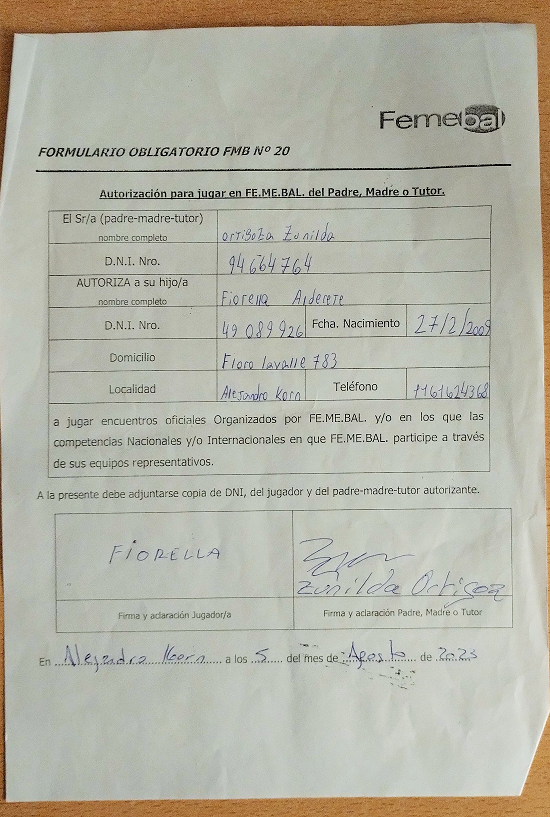 Femebal
FORMULARIO OBLIGATORIO FMB Nº 20
Autorización para jugar en FE.ME.BAL. del Padre, Madre o Tutor.
El Sr/a (padre-madre-tutor)
nombre completo
ortigoza Zunilda
D.N.I. Nro.
94664764
AUTORIZA a su hijo/a
nombre completo
Fiorella Alderete
D.N.I. Nro.
49 089 926
Fcha. Nacimiento
27/2/2009
Domicilio
Floro lavalle 783
Localidad
Alejandro Korn
Teléfono
1161624368
a jugar encuentros oficiales Organizados por FE.ME.BAL. y/o en los que las
competencias Nacionales y/o Internacionales en que FE.ME.BAL. participe a través
de sus equipos representativos.
A la presente debe adjuntarse copia de DNI, del jugador y del padre-madre-tutor autorizante.
FiORELLA
Zunilda Ortigoza
Firma y aclaración Jugador/a
Firma y aclaración Padre, Madre o Tutor
En Alejandro Korn a los 5 del mes de Agosto de 2023